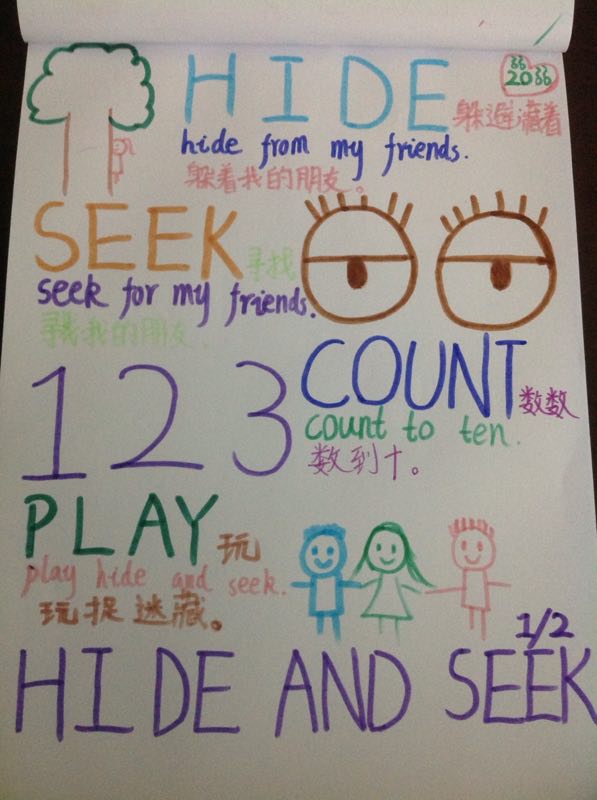 HIDE 躲避藏着
20
hide from my friends.
躲着我的朋友。
SEEK 寻找
seek for my friends.
寻找我的朋友.
1 2 3 COUNT 数数
count to ten.
数到十。
PLAY 玩
play hide and seek.
玩捉迷藏。
1/2
HIDE AND SEEK